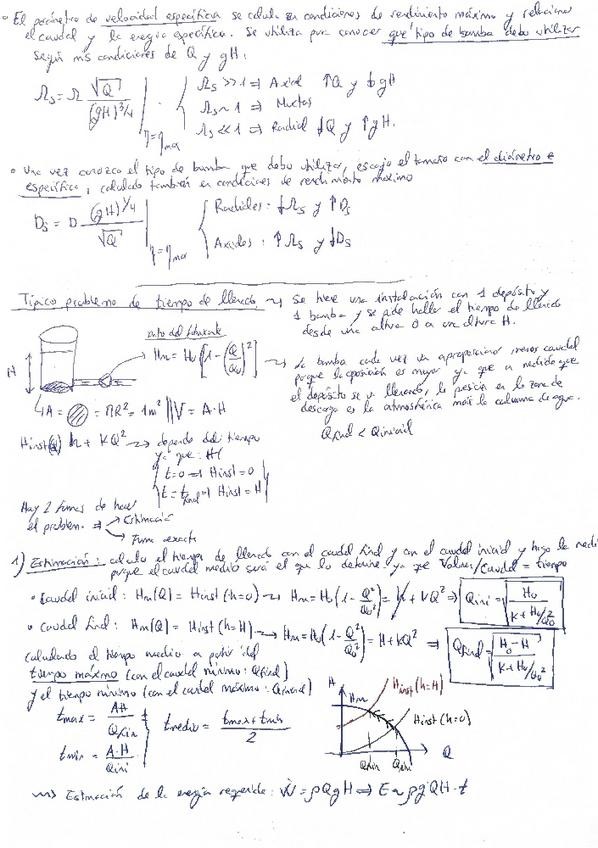 • El parámetro de velocidad específica se calcula en condiciones de rendimiento máximo y relaciona
el caudal y la energía específica. Se utiliza para conocer que tipo de bomba debo utilizar
según mis condiciones de Q y gH:
Ωs = Ω √Q / (gH)^3/4 | η=ηmax
Ωs >> 1 ⇒ Axial ↑Q y ↓gH
Ωs ~ 1 ⇒ Mixtas
Ωs << 1 ⇒ Radial ↓Q y ↑gH.
• Una vez conozco el tipo de bomba que debo utilizar, escojo el tamaño con el diámetro e
específica, calculado también en condiciones de rendimiento máximo
Ds = D (gH)^1/4 / √Q | η=ηmax
Radiales: ↓Ωs y ↑Ds
Axiales: ↑Ωs y ↓Ds
Típico problema de tiempo de llenado ⇝ Se tiene una instalación con 1 depósito y
1 bomba y se pide hallar el tiempo de llenado
desde una altura 0 a una altura H.
dato del fabricante
Hm = H0 [1 - (Q/Q0)²]
H
→ La bomba cada vez va a proporcionar menos caudal
porque la oposición es mayor ya que a medida que
el depósito se va llenando, la presión en la zona de
descarga es la atmosférica más la columna de agua.
Qfinal < Qinicial
A = = ΠR² = 1m² || V = A·H
Hinst(Q) h + KQ² ⇝ depende del tiempo
ya que:
t=0 ⇒ Hinst=0
t=tfinal ⇒ Hinst=H
Hay 2 formas de hacer
el problema ⇒ Estimación
Forma exacta
1) Estimación: calculo el tiempo de llenado con el caudal final y con el caudal inicial y hago la media
porque el caudal medio será el que lo determine ya que Volumen/caudal = tiempo
• Caudal inicial: Hm(Q) = Hinst(h=0) ⇝ Hm = H0(1 - Q²/Q0²) = h + KQ² ⇒ Qini = √(H0 / (K + H0/Q0²))
• Caudal final: Hm(Q) = Hinst(h=H) ⇝ Hm = H0(1 - Q²/Q0²) = H + KQ² ⇒ Qfinal = √((H0 - H) / (K + H0/Q0²))
calculando el tiempo medio a partir del
tiempo máximo (con el caudal mínimo: Qfinal)
y el tiempo mínimo (con el caudal máximo: Qinicial)
tmax = AH / Qfin
tmin = A·H / Qini
tmedio = (tmax + tmin) / 2
H
Hm
Hinst(h=H)
Hinst(h=0)
Qfin Qini
Q
⇝ Estimación de la energía requerida: Ẇ = ρQgH ⇒ E ~ ρgQH·t